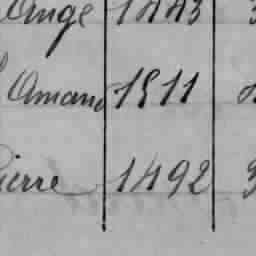 Ange 1443 3
Amand 1511
Pierre 1492 3